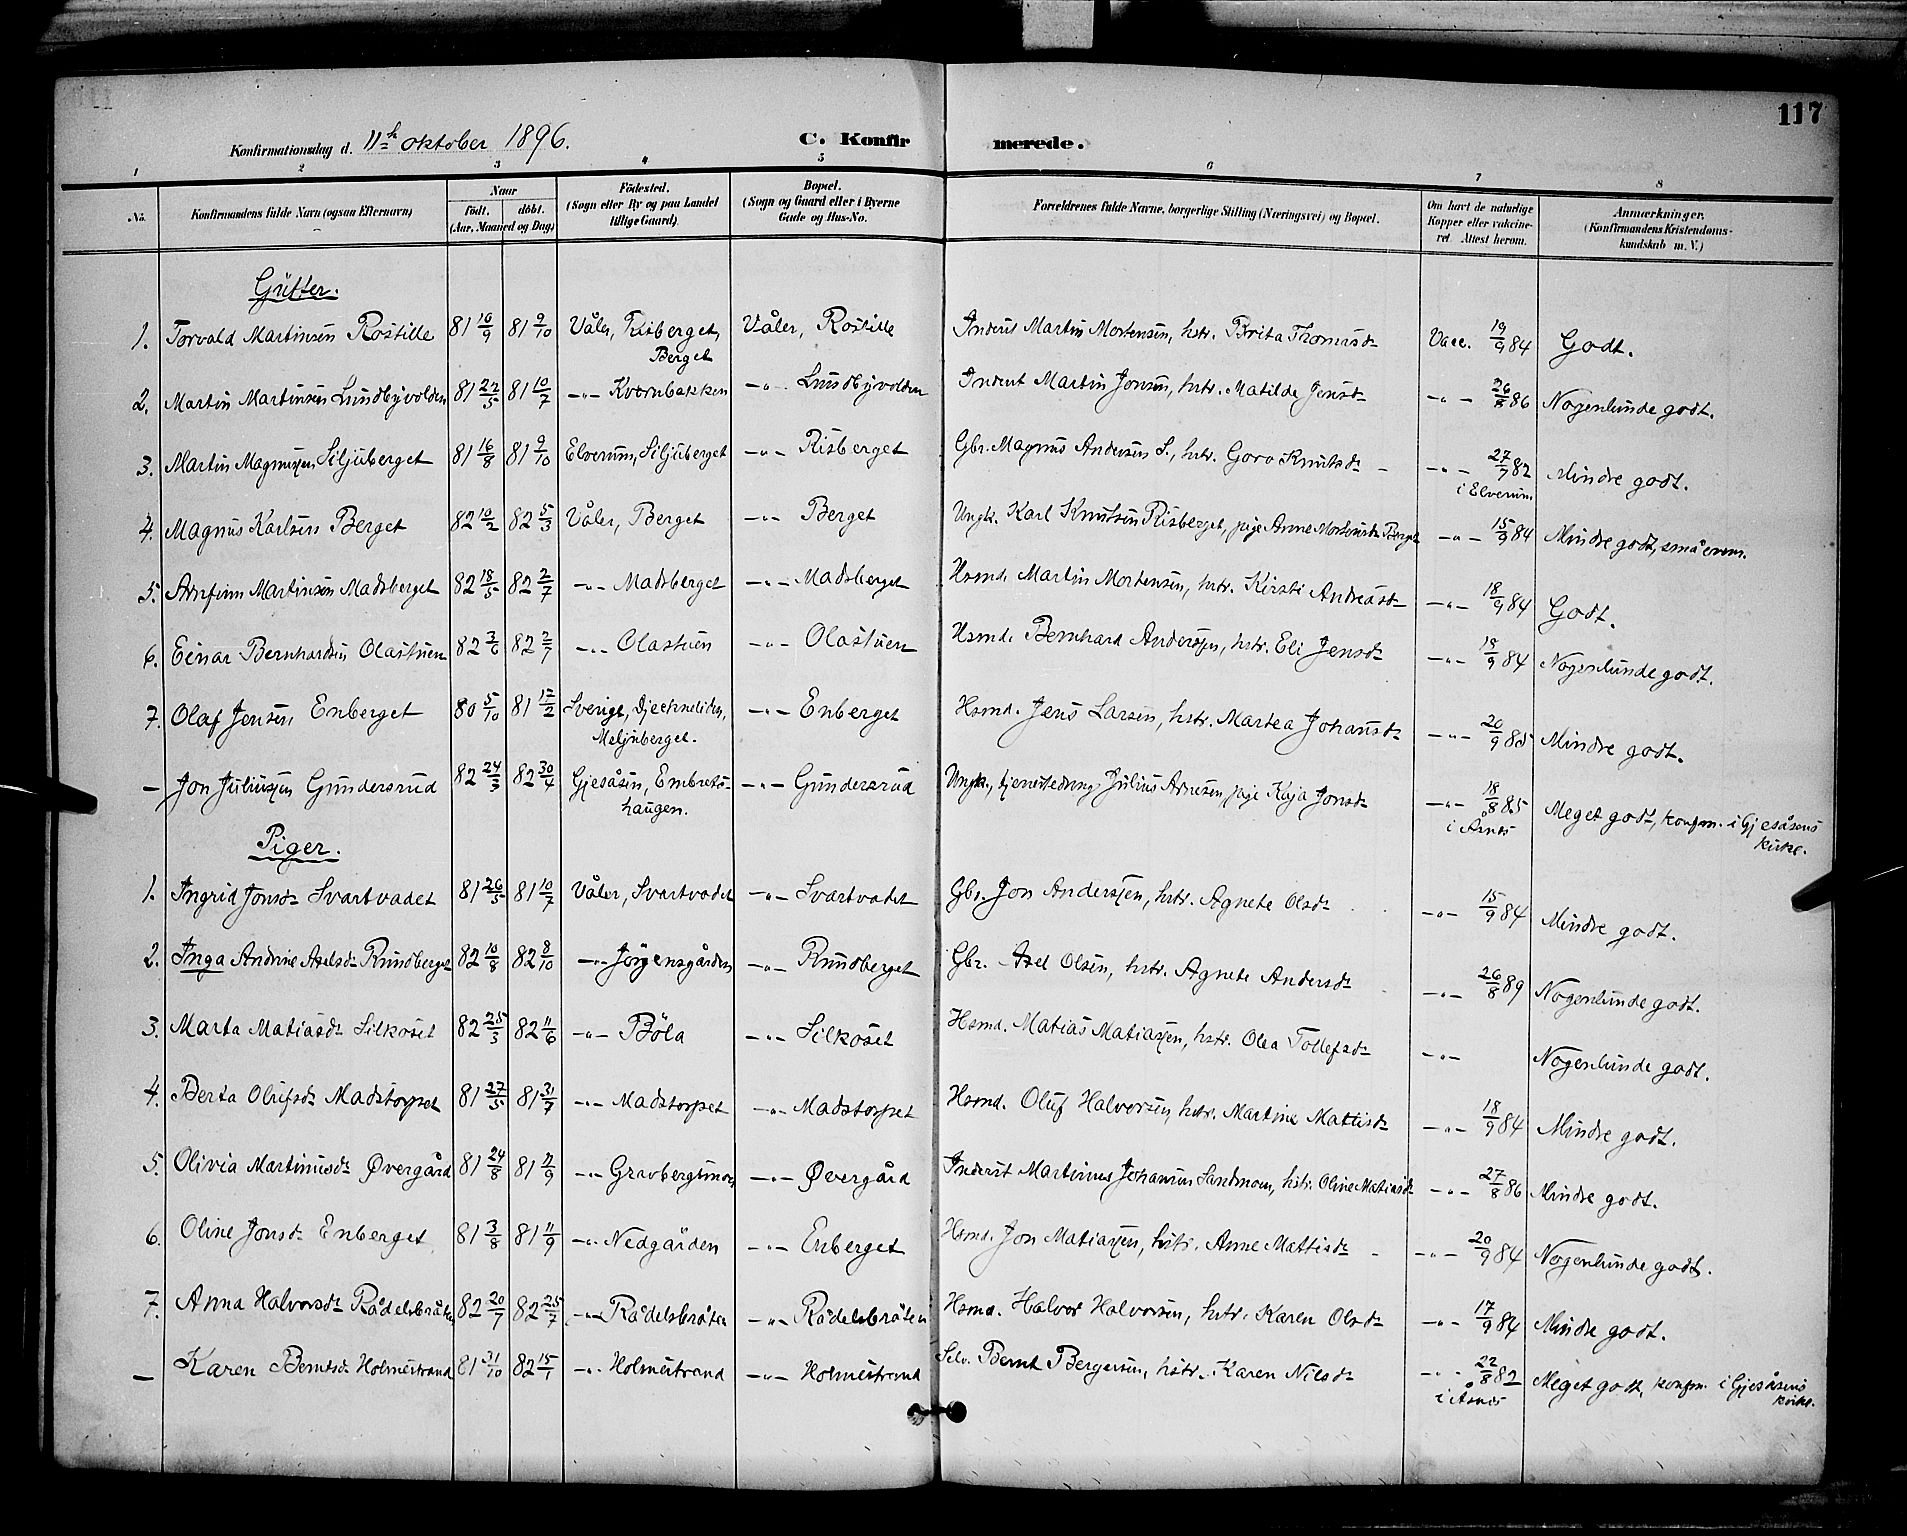 117
Konfirmationsdag d. 11h oktober 1896. C. Konfir merede.
1 2 3 4 5 6 7 8
No. Konfirmandens fulde Navn (ogsaa Efternavn) Naar födt. döbt. (Aar, Maaned og Dag) Födested. (Sogn eller By og paa Landet tillige Gaard). Bopæl. (Sogn og Gaard eller i Byerne Gade og Hus-No. Forældrenes fulde Navne, borgerlige Stilling (Næringsvei) og Bopæl. Om havt de naturlige Kopper eller vakcineret Attest herom. Anmærkninger. (Konfirmandens Kristendomskundskab m. V.)
Gutter.
1. Torvald Martinsen Rostille 81 16/9 81 9/10 Våler, Risberget, Berget Våler, Rostille Inderst Martin Mortensen, hstr. Brita Thomasdr Vacc. 19/9 84 Godt.
2. Martin Martinsen Lundbyvolden 81 22/5 81 10/7 -"- Kvernbakken -"- Lundbyvolden Inderst Martin Jonsen, hstr. Matilde Jensdr -"- 26/8 86 Nogenlunde godt.
3. Martin Magnussen Siljuberget 81 16/8 81 9/10 Elverum, Siljuberget -"- Risberget Gbr. Magnus Andersen S., hstr. Goro Knutsdr -"- 27/7 82 i Elverum Mindre godt.
4. Magnus Karlsen Berget 82 10/2 82 5/3 Våler, Berget -"- Berget Ungk. Karl Knutsen Risberget, pige Anne Mortensdr Berget -"- 15/9 84 Mindre godt, små evner.
5. Arnfinn Martinsen Madsberget 82 18/5 82 2/7 -"- Madsberget -"- Madsberget Hsmd. Martin Mortensen, hstr. Kirsti Andreasdr -"- 18/9 84 Godt.
6. Einar Bernhardsen Olastuen 82 3/6 82 2/7 -"- Olastuen -"- Olastuen Hsmd. Bernhard Anderssen, hstr. Eli Jensdr -"- 15/9 84 Nogenlunde godt.
7. Olaf Jensen Enberget 80 5/10 81 12/2 Sverige, Meljuberget. -"- Enberget Hsmd. Jens Larsen, hstr. Martea Johansdr -"- 20/9 85 Mindre godt.
- Jon Juliussen Gundersrud 82 24/3 82 30/4 Gjesåsen, Embretshaugen. -"- Gundersrud Ungk., tjenestedreng Julius Arnesen, pige Kaja Jonsdr -"- 18/8 85 i Åsnes Meget godt, konfm. i Gjesåsens kirke.
Piger.
1. Ingrid Jonsdr Svartvadet 81 26/5 81 10/7 Våler, Svartvadet -"- Svartvadet Gbr. Jon Anderssen, hstr. Agnete Olsdr -"- 15/9 84 Mindre godt.
2. Inga Andrine Axelsdr Rundberget 82 10/8 82 8/10 -"- Jörgensgården -"- Rundberget Gbr. Axel Olsen, hstr. Agnete Andersdr -"- 26/8 89 Nogenlunde godt.
3. Marta Matiasdr Silkoset 82 25/3 82 11/6 -"- Böla -"- Silkoset Hsmd. Matias Matiassen, hstr. Olea Tollefsdr -"- Nogenlunde godt.
4. Berta Olufsdr Madstorpet 81 27/5 81 31/7 -"- Madstorpet -"- Madstorpet Hsmd. Oluf Halvorsen, hstr. Martine Mattisdr -"- 18/9 84 Mindre godt.
5. Olivia Martinusdr Øvergård 81 24/8 81 11/9 -"- Gravbergsmoen -"- Øvergård Inderst Martinus Johansen Sandmoen, hstr. Oline Matiasdr -"- 27/8 86 Mindre godt.
6. Oline Jonsdr Enberget 81 3/8 81 11/9 -"- Nedgården -"- Enberget Hsmd. Jon Matiassen, hstr. Anne Mattisdr -"- 20/9 84 Nogenlunde godt.
7. Anna Halvorsdr Rådelsbråten 82 20/7 82 25/7 -"- Rådelsbråten -"- Rådelsbråten Hsmd. Halvor Halvorsen, hstr. Karen Olsdr -"- 17/9 84 Mindre godt.
- Karen Berntsdr Holmestrand 81 31/10 82 15/1 -"- Holmestrand -"- Holmestrand Selv. Bernt Bergersen, hstr. Karen Nilsdr -"- 22/8 82 i Åsnes Meget godt, konfm. i Gjesåsens kirke.